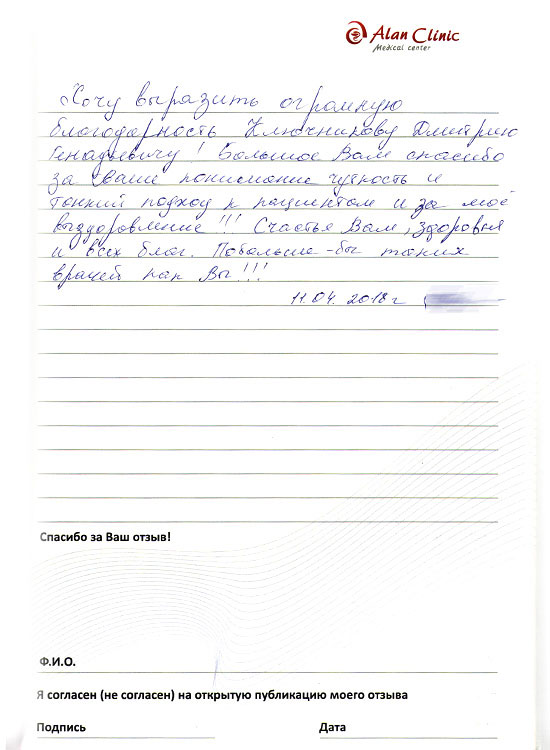 Alan Clinic
Medical center
Хочу выразить огромную
благодарность Ключникову Дмитрию
Генадиевичу! Большое Вам спасибо
за Ваше понимание чуткость и
тонкий подход к пациентам и за моё
выздоровление!!! Счастья Вам, здоровья
и всех благ. Побольше-бы таких
врачей как Вы!!!
11.04.2018 г
Спасибо за Ваш отзыв!
Ф.И.О.
Я согласен (не согласен) на открытую публикацию моего отзыва
Подпись Дата